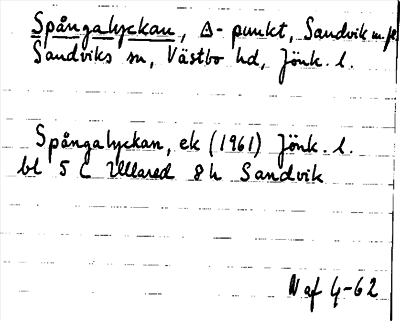 Spångalyckan, Δ-punkt, Sandvik m.fl.
Sandviks sn, Västbo hd, Jönk. l.
Spångalyckan, ek (1961) Jönk. l.
bl 5 C Ullared 8 h Sandvik
N af 4-62